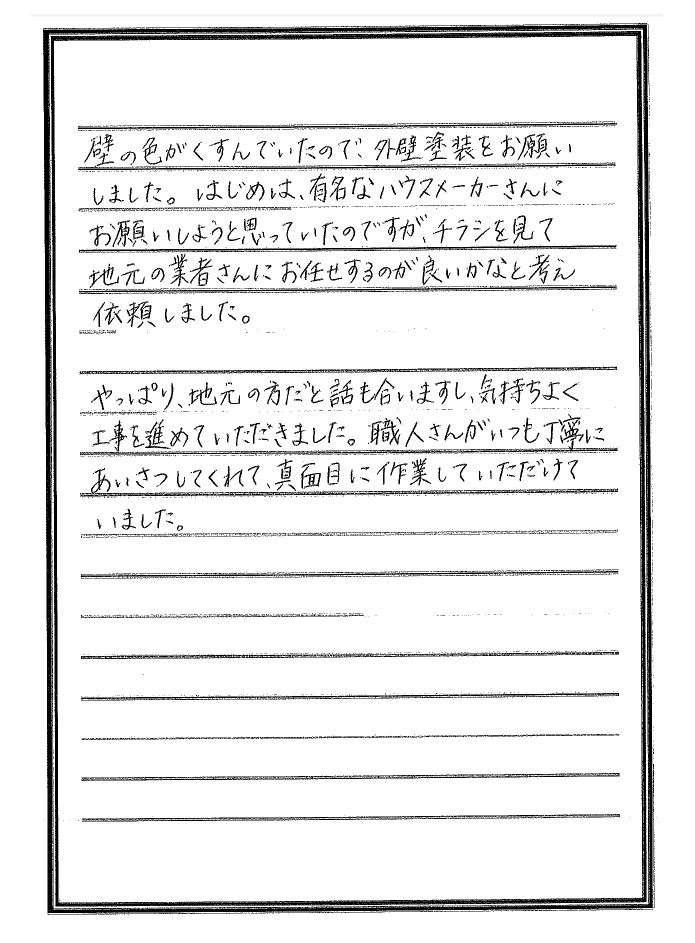 壁の色がくすんでいたので、外壁塗装をお願い
しました。はじめは、有名なハウスメーカーさんに
お願いしようと思っていたのですが、チラシを見て
地元の業者さんにお任せするのが良いかなと考え
依頼しました。
やっぱり、地元の方だと話も合いますし、気持ちよく
工事を進めていただきました。職人さんがいつも丁寧に
あいさつしてくれて、真面目に作業していただけて
いました。